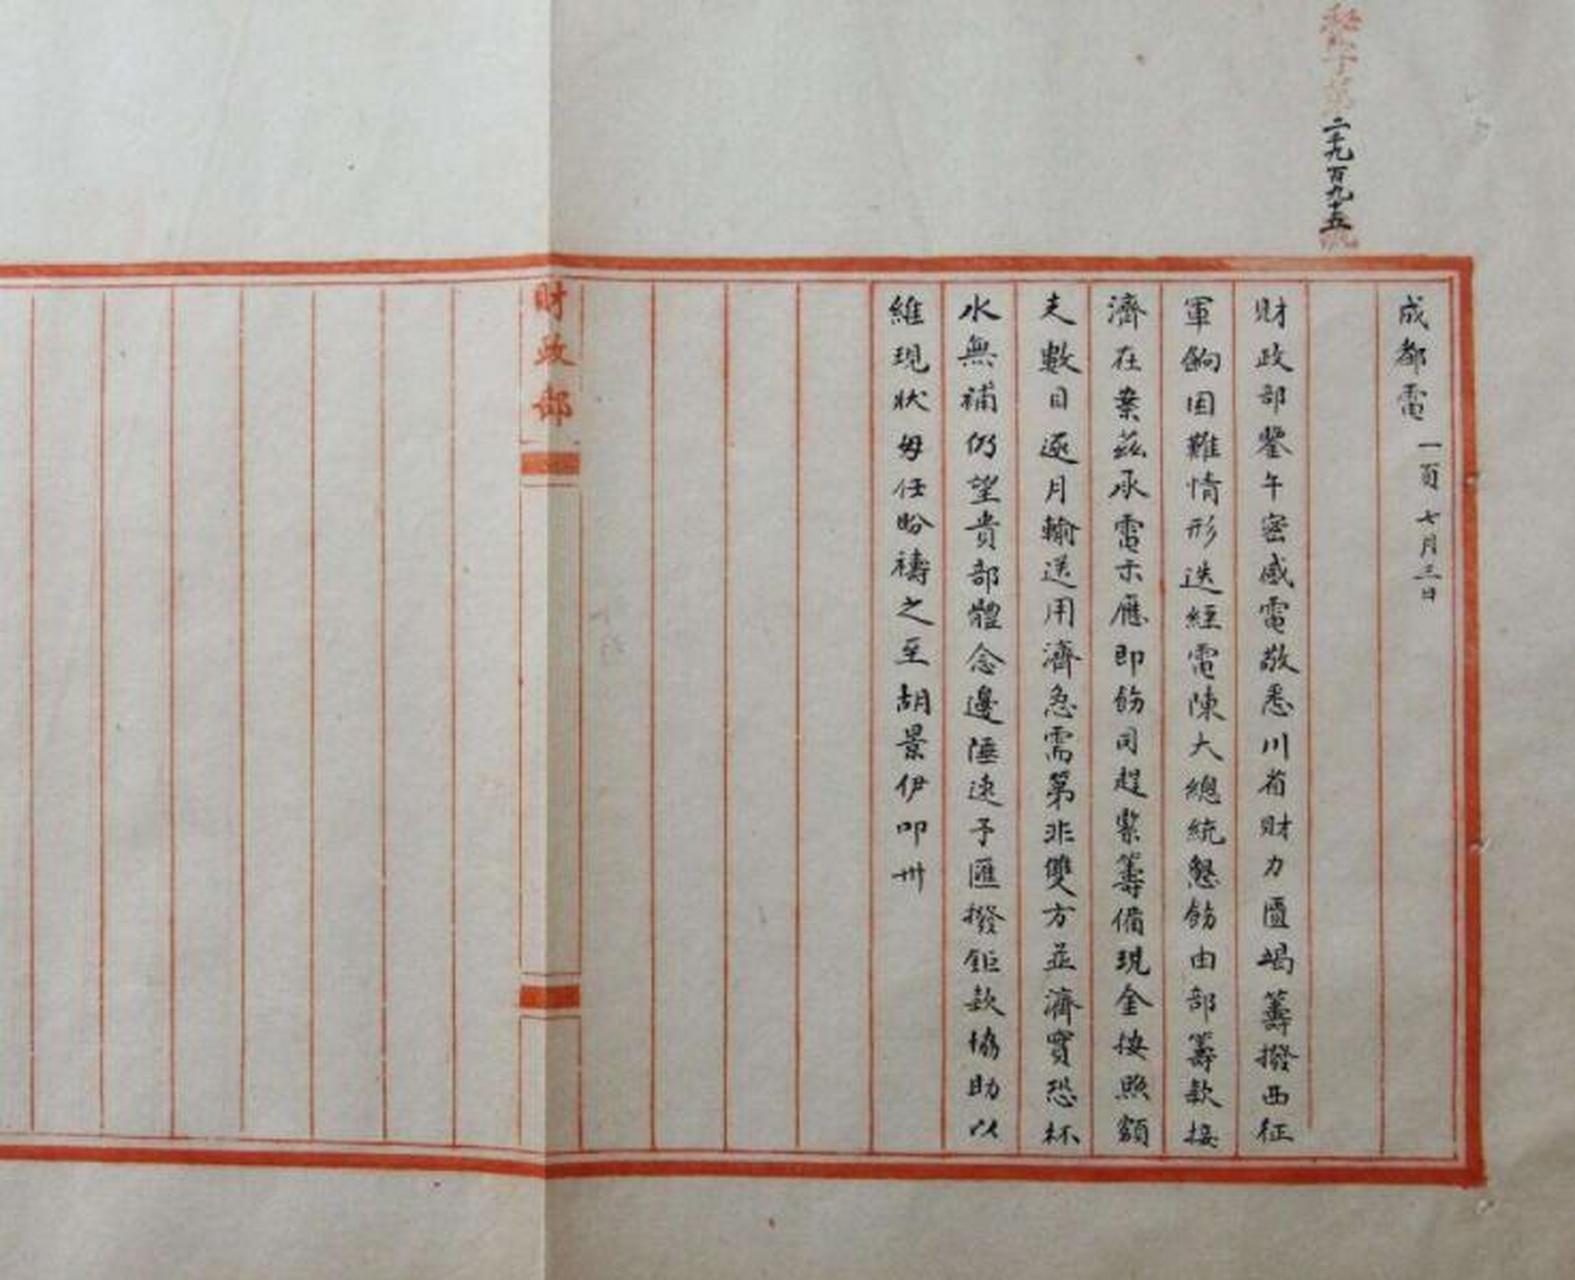 秘字第二千九百九十五號
成都電 一百 七月三日
財政部鑒午密感電敬悉川省財力匱竭籌撥西征
軍餉困難情形迭經電陳大總統懇飭由部籌款接
濟在案茲承電示應即飭司趕緊籌備現金按照額
支數目逐月輸送用濟急需第非雙方並濟實恐杯
水無補仍望貴部體念邊陲速予匯撥鉅款協助以
維現狀毋任盼禱之至胡景伊叩卅
財政部